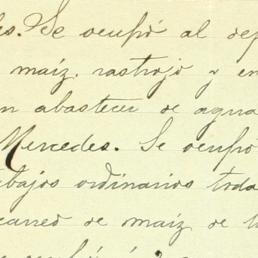 Se ocupó al dep
maíz, rastrojo y en
n abastecer de agua
Mercedes. Se ocupó
bajos ordinarios toda
carreo de maíz de l